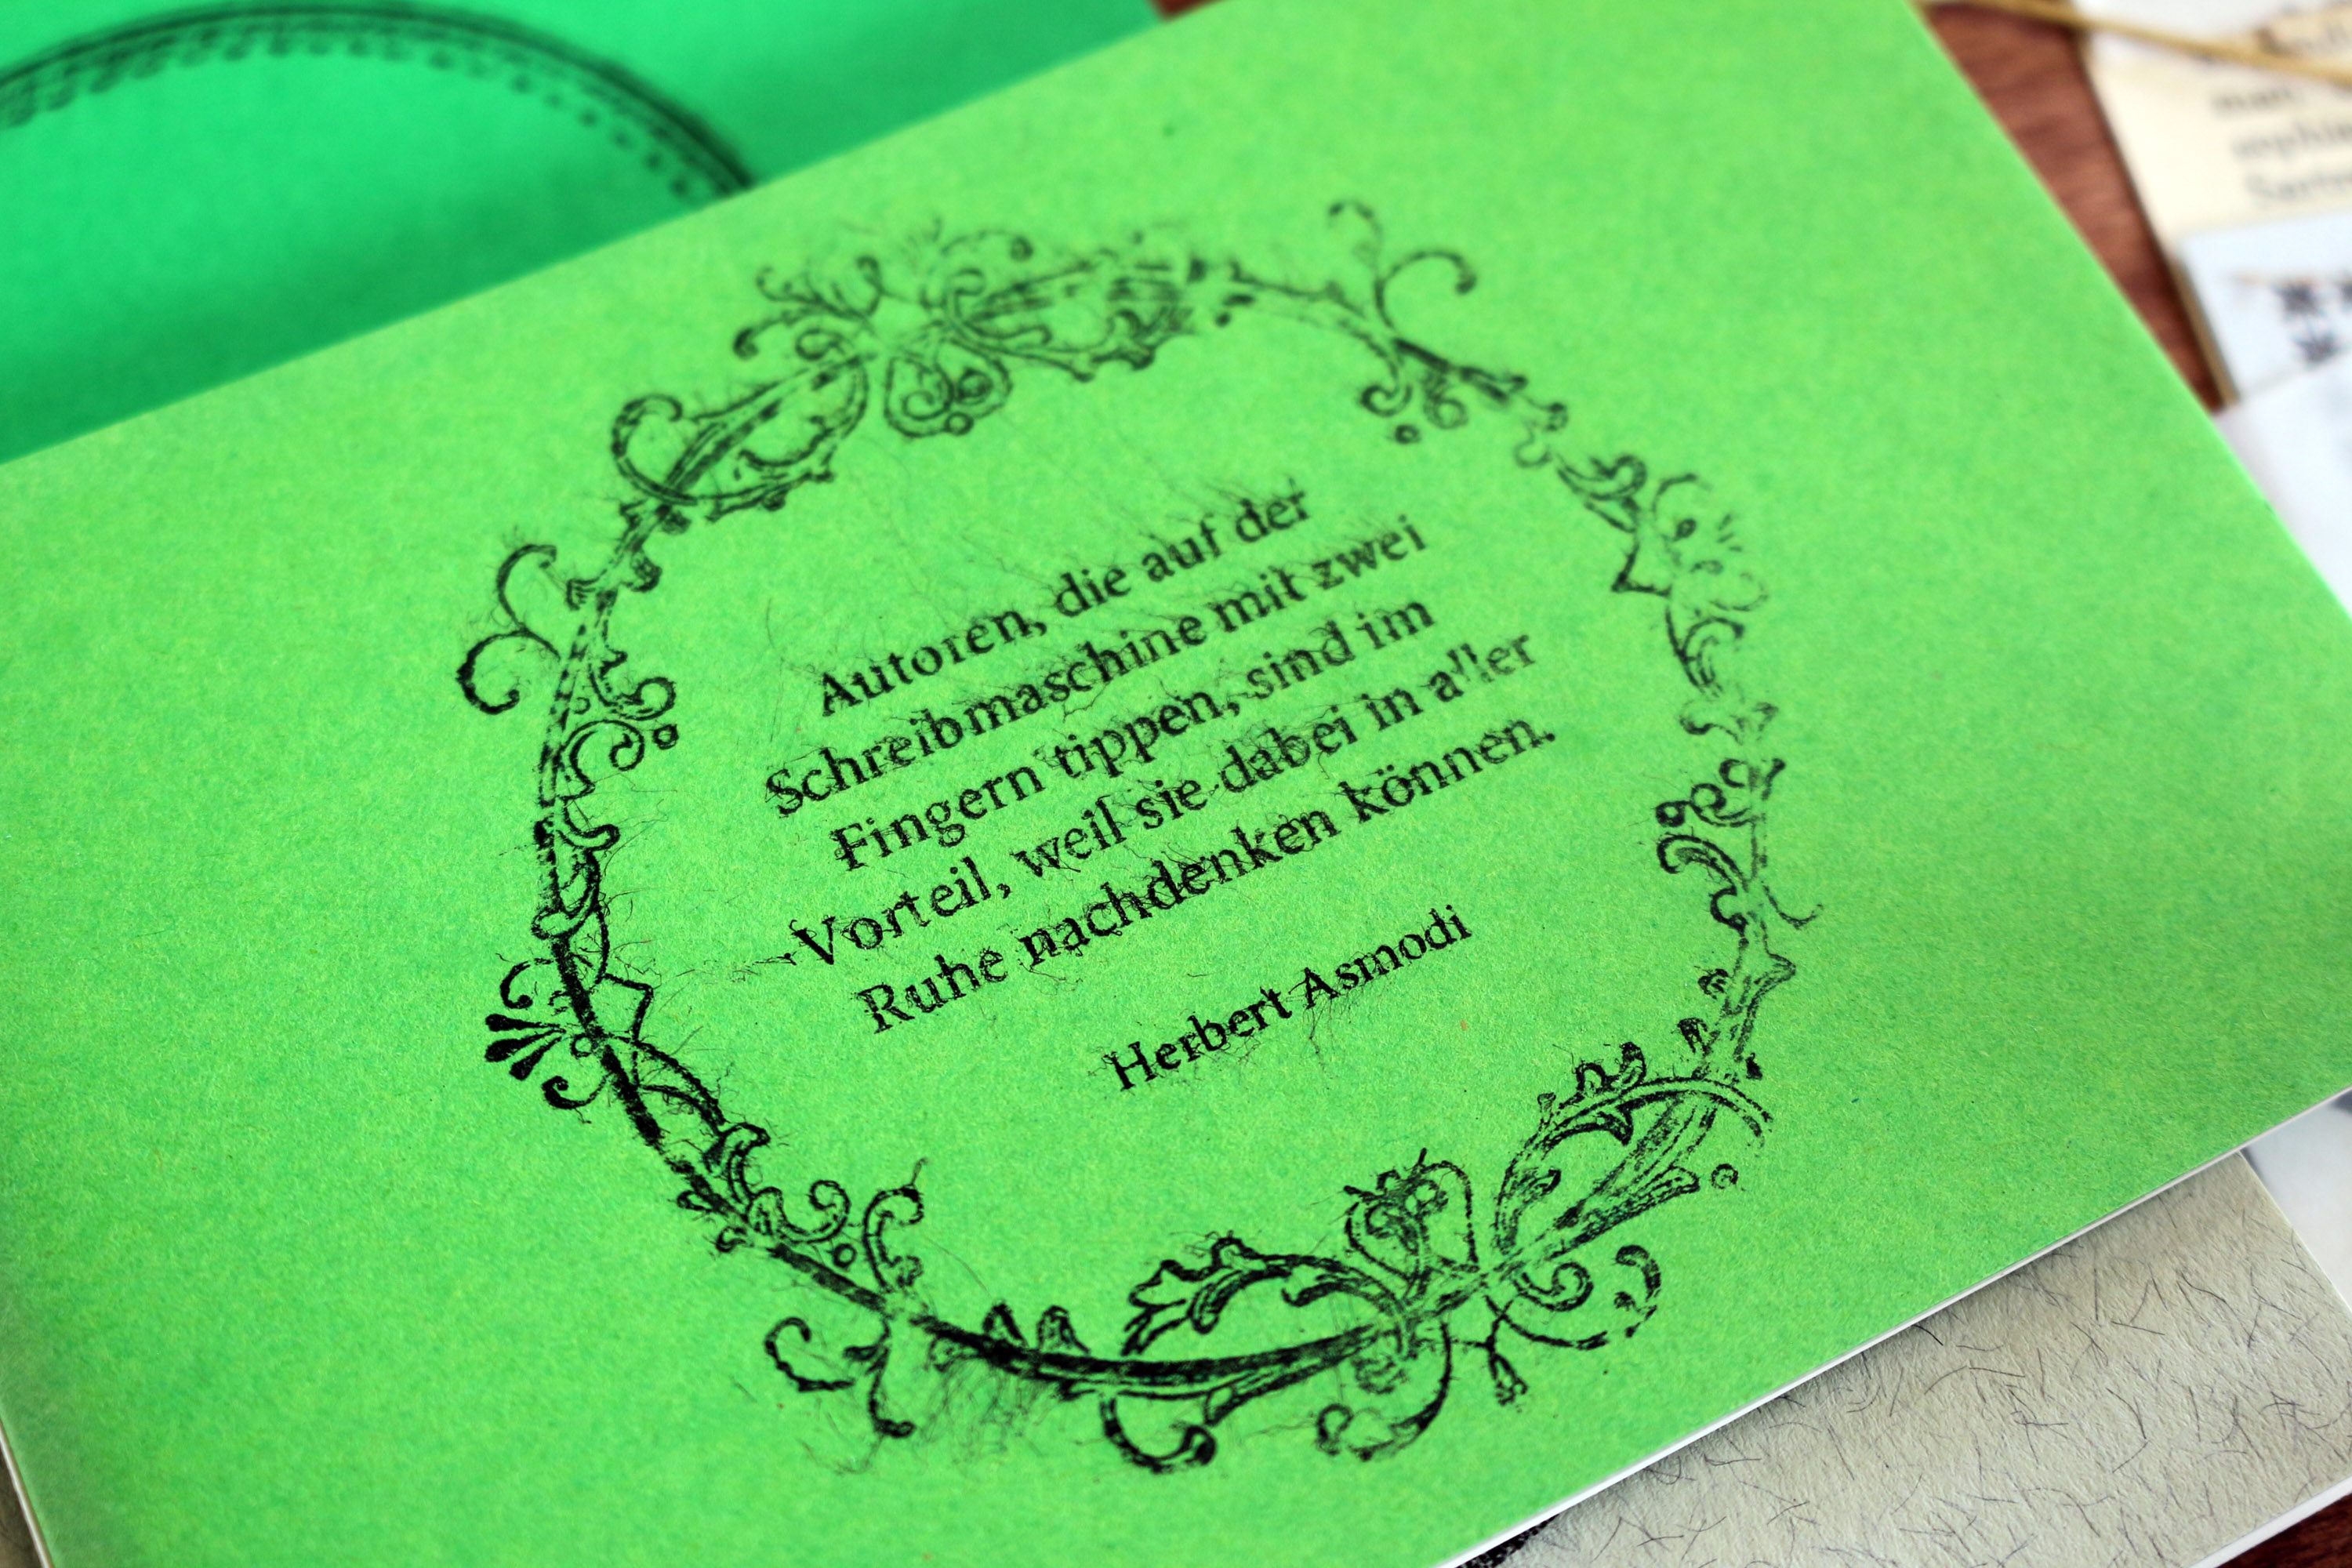 Autoren, die auf der
Schreibmaschine mit zwei
Fingern tippen, sind im
Vorteil, weil sie dabei in aller
Ruhe nachdenken können.
Herbert Asmodi